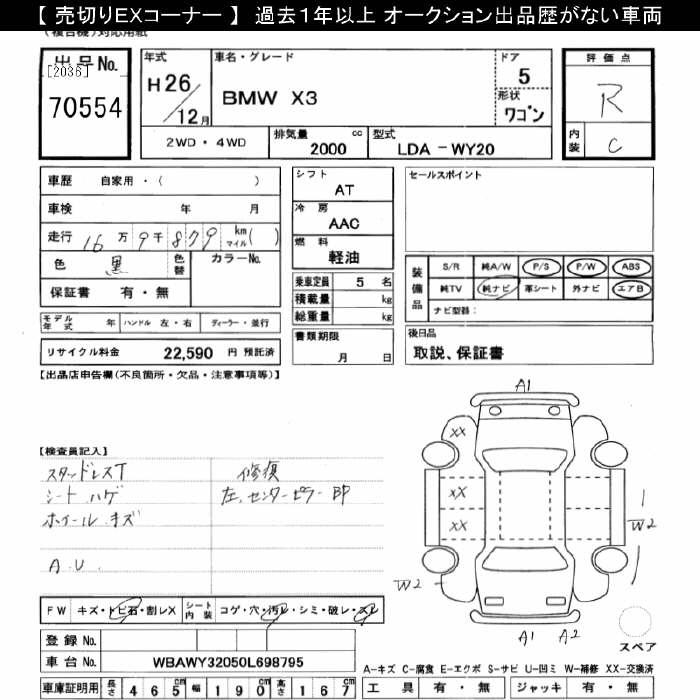 【 売切りEXコーナー 】 過去１年以上 オークション出品歴がない車両
(複合機)対応用紙
出品No.
[2036]
70554
年式
H26/12月
車名・グレード
BMW X3
ドア
5
形状
ワゴン
評価点
R
内装
C
2WD・4WD
排気量
2000
cc
型式
LDA－WY20
車歴 自家用・( )
車検 年 月
走行 16万9千879 km マイル( )
色 黒
色替
カラーNo.
保証書 有・無
モデル年式 年
ハンドル 左・右
ディーラー・並行
リサイクル料金 22,590 円 預託済
シフト
AT
冷房
AAC
燃料
軽油
乗車定員 5 名
積載量 kg
総重量 kg
書類期限
月 日
セールスポイント
装備品
S/R 純A/W P/S P/W ABS
純TV 純ナビ 革シート 外ナビ エアB
ナビ型器:
後日品
取説、保証書
【出品店申告欄(不良箇所・欠品・注意事項等)】
【検査員記入】
スタッドレスT
シート ハゲ
ホイール キズ
A.U.
修復
左.センターピラー 即
A1
XX
XX
XX
W2
W2
A1 A2
スペア
FW キズ・トビ石・割レX
シート内装 コゲ・穴・汚レ・シミ・破レ・スレ
登録 No.
車台 No. WBAWY32050L698795
車庫証明用 長さ 465 cm 幅 190 cm 高さ 167 cm
A－キズ C－腐食 E－エクボ S－サビ U－凹ミ W－補修 XX－交換済
工具 有・無 ジャッキ 有・無